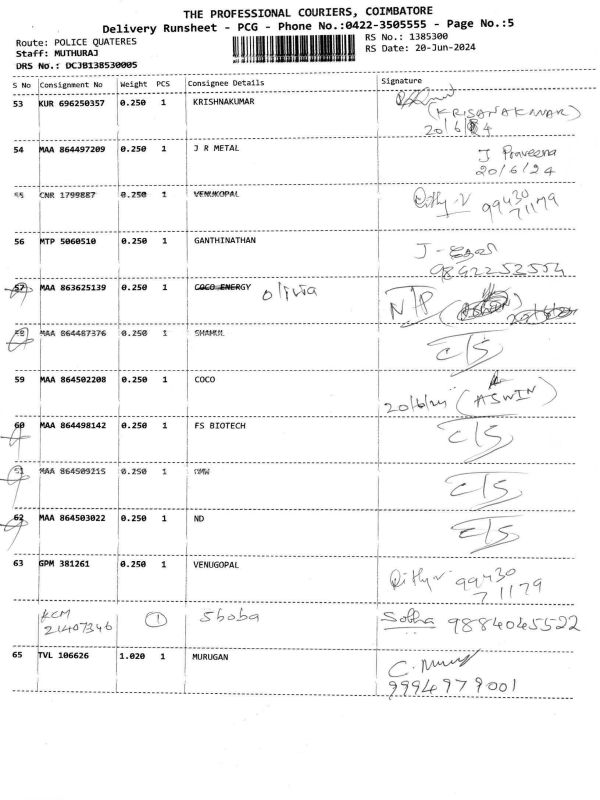 THE PROFESSIONAL COURIERS, COIMBATORE
Delivery Runsheet - PCG - Phone No.:0422-3505555 - Page No.:5
Route: POLICE QUATERES RS No.: 1385300
Staff: MUTHURAJ RS Date: 20-Jun-2024
DRS No.: DCJB138530005
S No Consignment No Weight PCS Consignee Details Signature
53 KUR 696250357 0.250 1 KRISHNAKUMAR
(KRISANAKUMAR)
20/6/24
54 MAA 864497209 0.250 1 J R METAL J Praveena
20/6/24
55 CNR 1799887 0.250 1 VENUKOPAL 99430
71179
56 MTP 5060510 0.250 1 GANTHINATHAN
9892252554
57 MAA 863625139 0.250 1 COCO ENERGY Olivia N/P
58 MAA 864487376 0.250 1 SHAHUL C/S
59 MAA 864502208 0.250 1 COCO 20/6/24 (ASWIN)
60 MAA 864498142 0.250 1 FS BIOTECH C/S
61 MAA 864509215 0.250 1 C/S
62 MAA 864503022 0.250 1 ND C/S
63 GPM 381261 0.250 1 VENUGOPAL 99430
71179
KCM 1 Shoba Sobha 9884045522
21407346
65 TVL 106626 1.020 1 MURUGAN C. Murug
9994979001